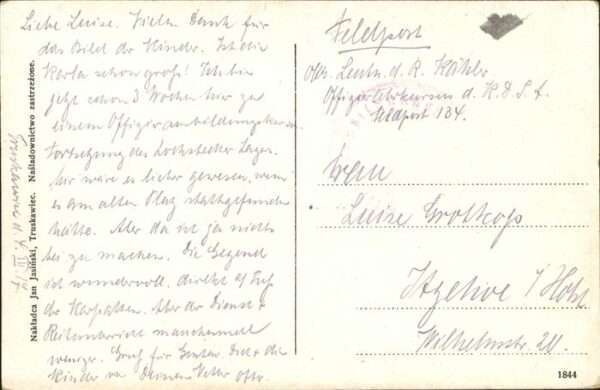 Liebe Luise. Vielen Dank für
das Bild der Kinder. Ist ein
Karla schon groß! Ich bin
jetzt schon 3 Wochen hier zu
einem Offizierausbildungskursus
Fortsetzung des Lockstedter Lager.
Mir wäre es lieber gewesen, wenn
es am alten Platz stattgefunden
hätte. Aber da ist ja nichts
bei zu machen. Die Gegend
ist wundervoll, direkt a/ Fuß
der Karpathen. Aber der Dienst +
Reitunterricht manchmal
weniger. Gruß für Gustav. Dich + die
Kinder von Deinem Vetter Otto.
Nakładca Jan Jasiński, Truskawiec. Naśladownictwo zastrzeżone.
Feldpost
Abs. Leutn. d. R. Köhler
Offizierlehrkursus d.
Feldpost 134.
Frau
Luise Grotkop
Itzehoe i/ Holst
Wilhelmstr.
1844